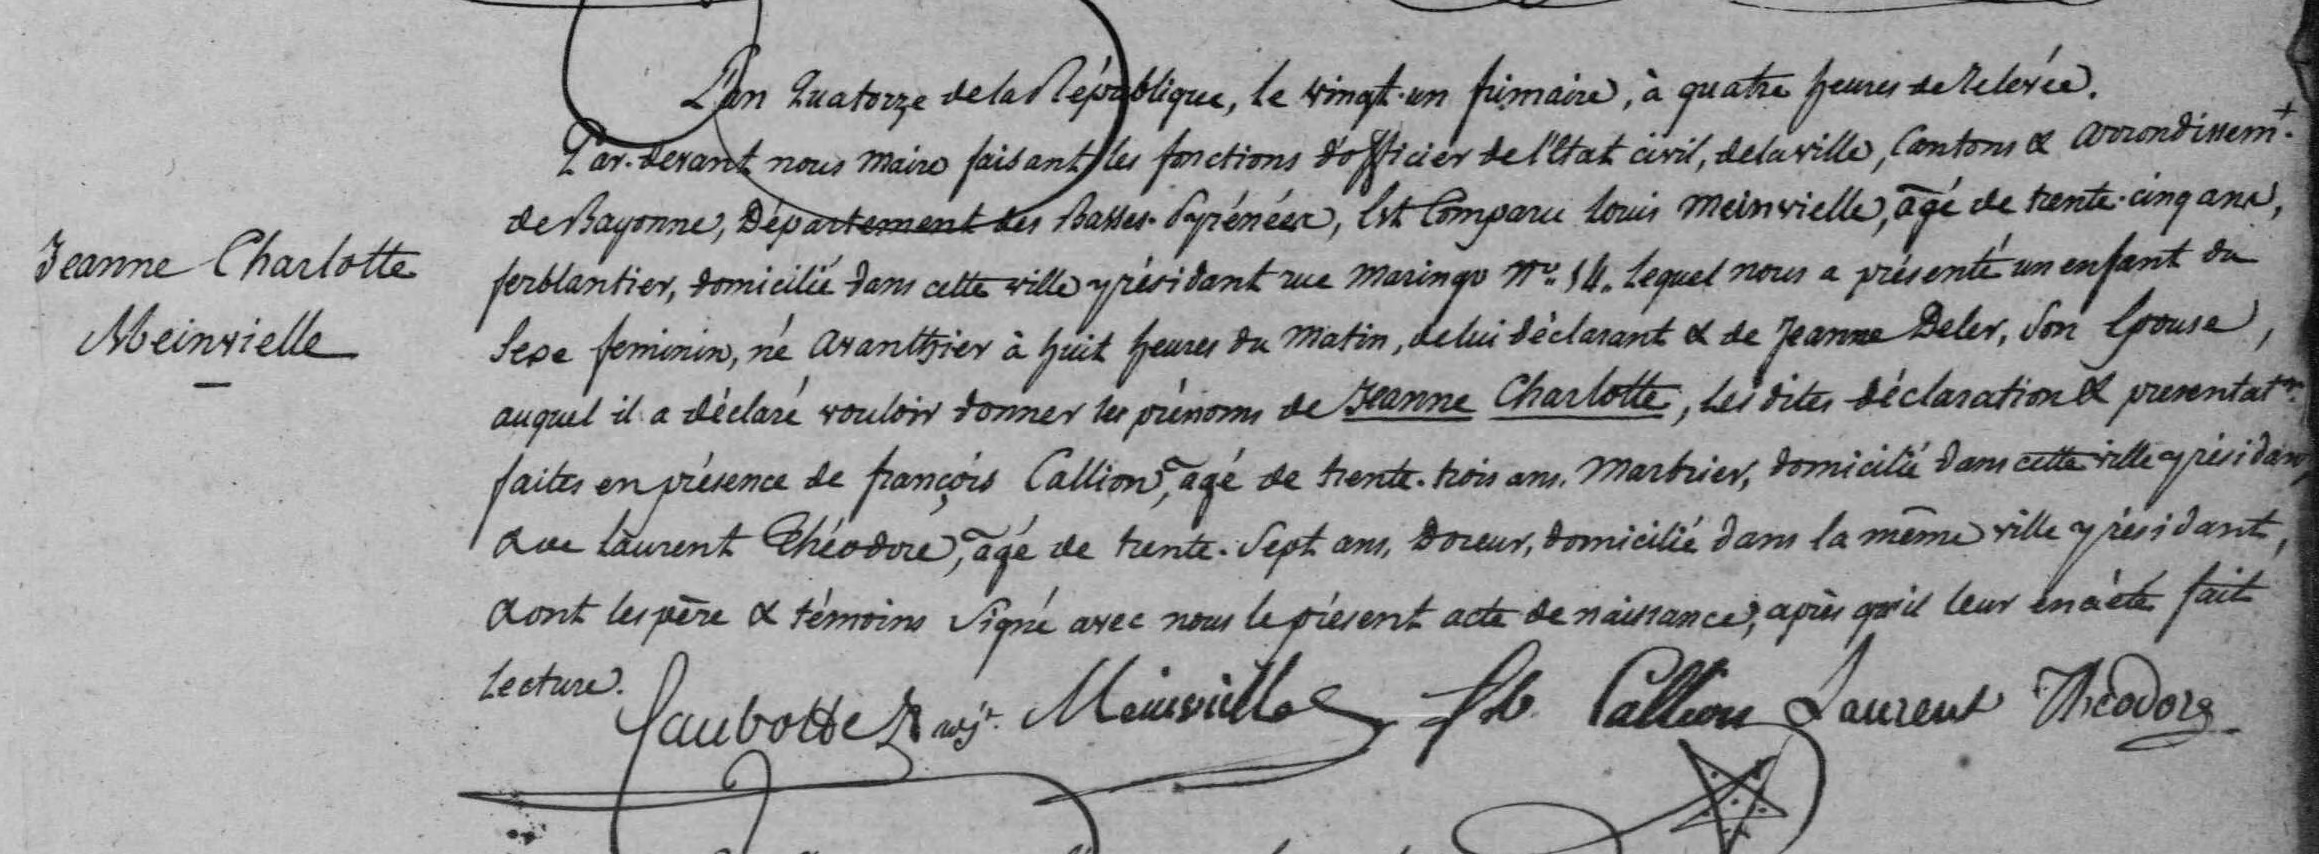 L'an Quatorze de la République, le vingt-un frimaire, à quatre heures de relevée.
Par-devant nous Maire faisant les fonctions d'officier de l'Etat civil, de la ville, Cantons & arrondissemt.
de Bayonne, Département des Basses-Pyrénées, Est Comparu Louis Meinvielle, agé de trente-cinq ans,
Jeanne Charlotte
Meinvielle
ferblantier, domicilié dans cette ville y résidant rue Maringo No. 14. Lequel nous a présenté un enfant du
Sexe feminin, né avanthier à huit heures du Matin, de lui déclarant & de Jeanne Deler, son Epouse,
auquel il a déclaré vouloir donner les prénoms de Jeanne Charlotte, Les dites déclaration & presentatn.
faites en présence de françois Callion, agé de trente-trois ans, Marbrier, domicilié dans cette ville y résidant
& de Laurent Théodore, agé de trente-Sept ans, Doreur, domicilié dans la même ville y résidant,
& ont les père & témoins Signé avec nous le présent acte de naissance, après qu'il leur en a été fait
Lecture.
Laubotte adjt. Meinvielle Callion Laurent Théodore